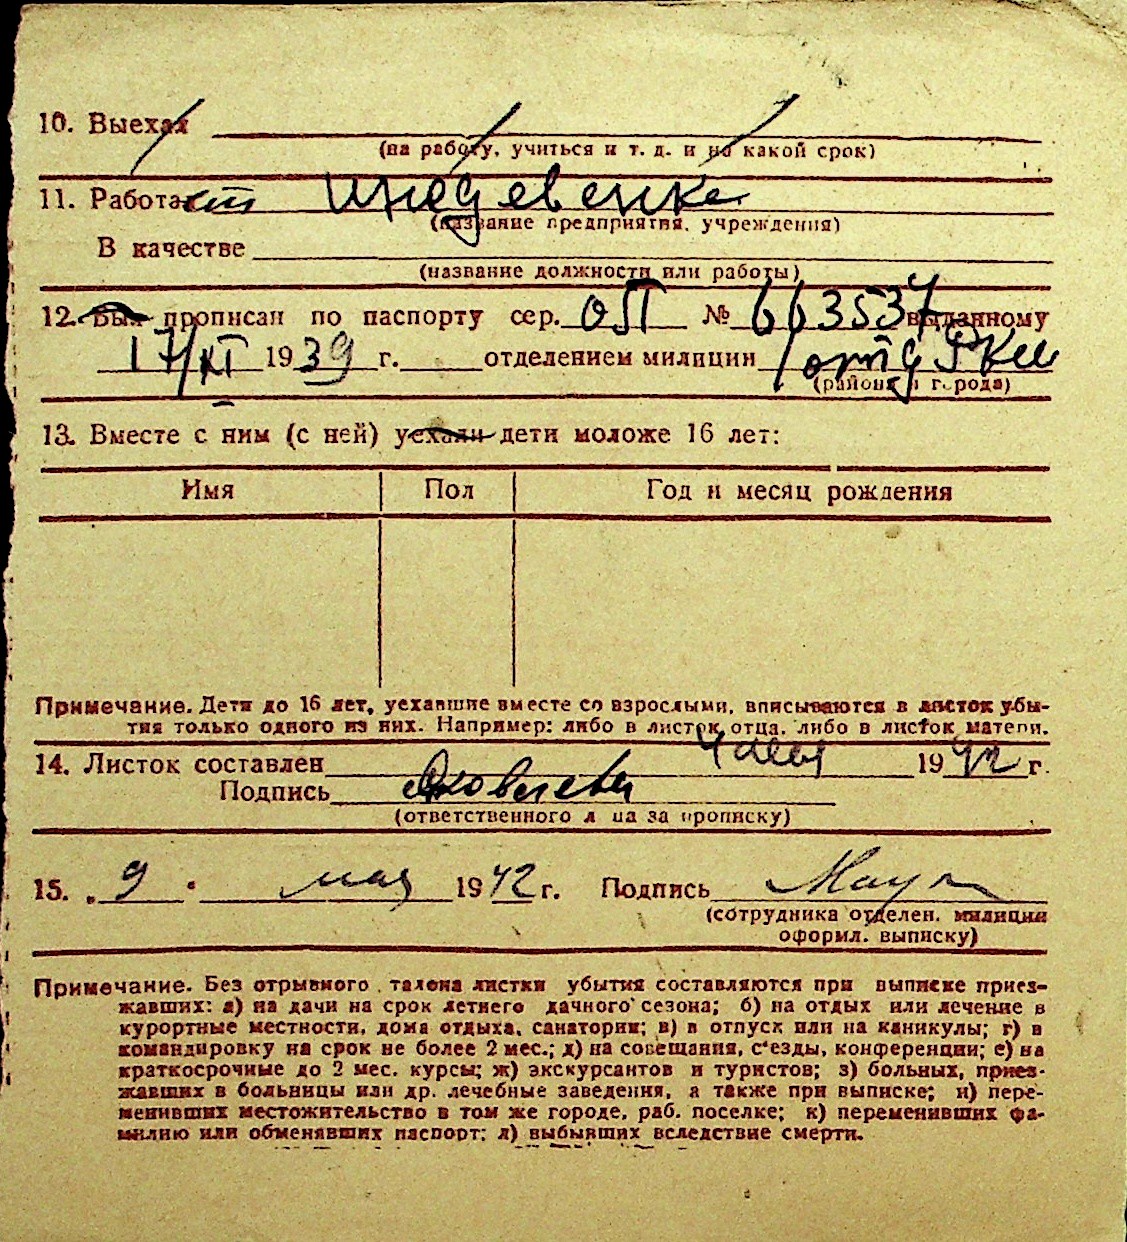 10. Выехал
(на работу, учиться и т. д. и на какой срок)
11. Работает иждевенка
(название предприятия, учреждения)
В качестве
(название должности или работы)
12. Был прописан по паспорту сер. ОЛ № 663537 выданному
17/XI 1939 г. отделением милиции
(района и города)
13. Вместе с ним (с ней) уехали дети моложе 16 лет:
Имя Пол Год и месяц рождения
Примечание. Дети до 16 лет, уехавшие вместе со взрослыми, вписываются в листок убы-
тия только одного из них. Например: либо в листок отца, либо в листок матери.
14. Листок составлен 4 мая 1942 г.
Подпись Яковлева
(ответственного лица за прописку)
15. „ 9 " мая 1942 г. Подпись
(сотрудника отделен. милиции
оформл. выписку)
Примечание. Без отрывного талона листки убытия составляются при выписке приез-
жавших: а) на дачи на срок летнего дачного сезона; б) на отдых или лечение в
курортные местности, дома отдыха, санатории; в) в отпуск или на каникулы; г) в
командировку на срок не более 2 мес.; д) на совещания, с'езды, конференции; е) на
краткосрочные до 2 мес. курсы; ж) экскурсантов и туристов; з) больных, приез-
жавших в больницы или др. лечебные заведения, а также при выписке; и) пере-
менивших местожительство в том же городе, раб. поселке; к) переменивших фа-
милию или обменявших паспорт; л) выбывших вследствие смерти.